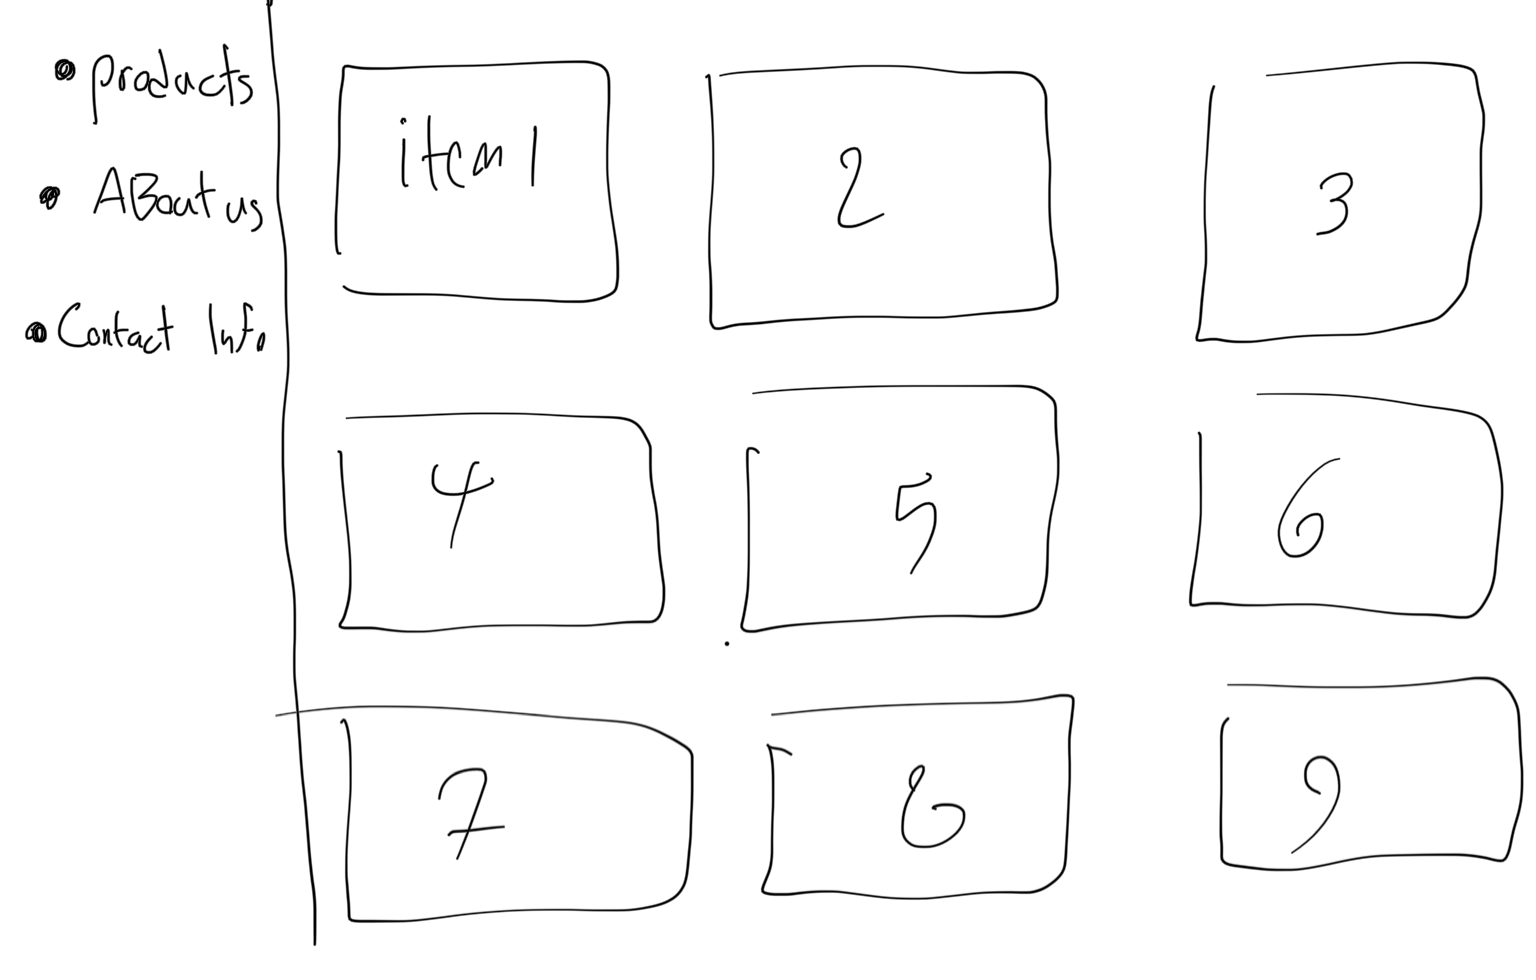 • products
• ABout us
• Contact Info
item 1
2
3
4
5
6
7
8
9